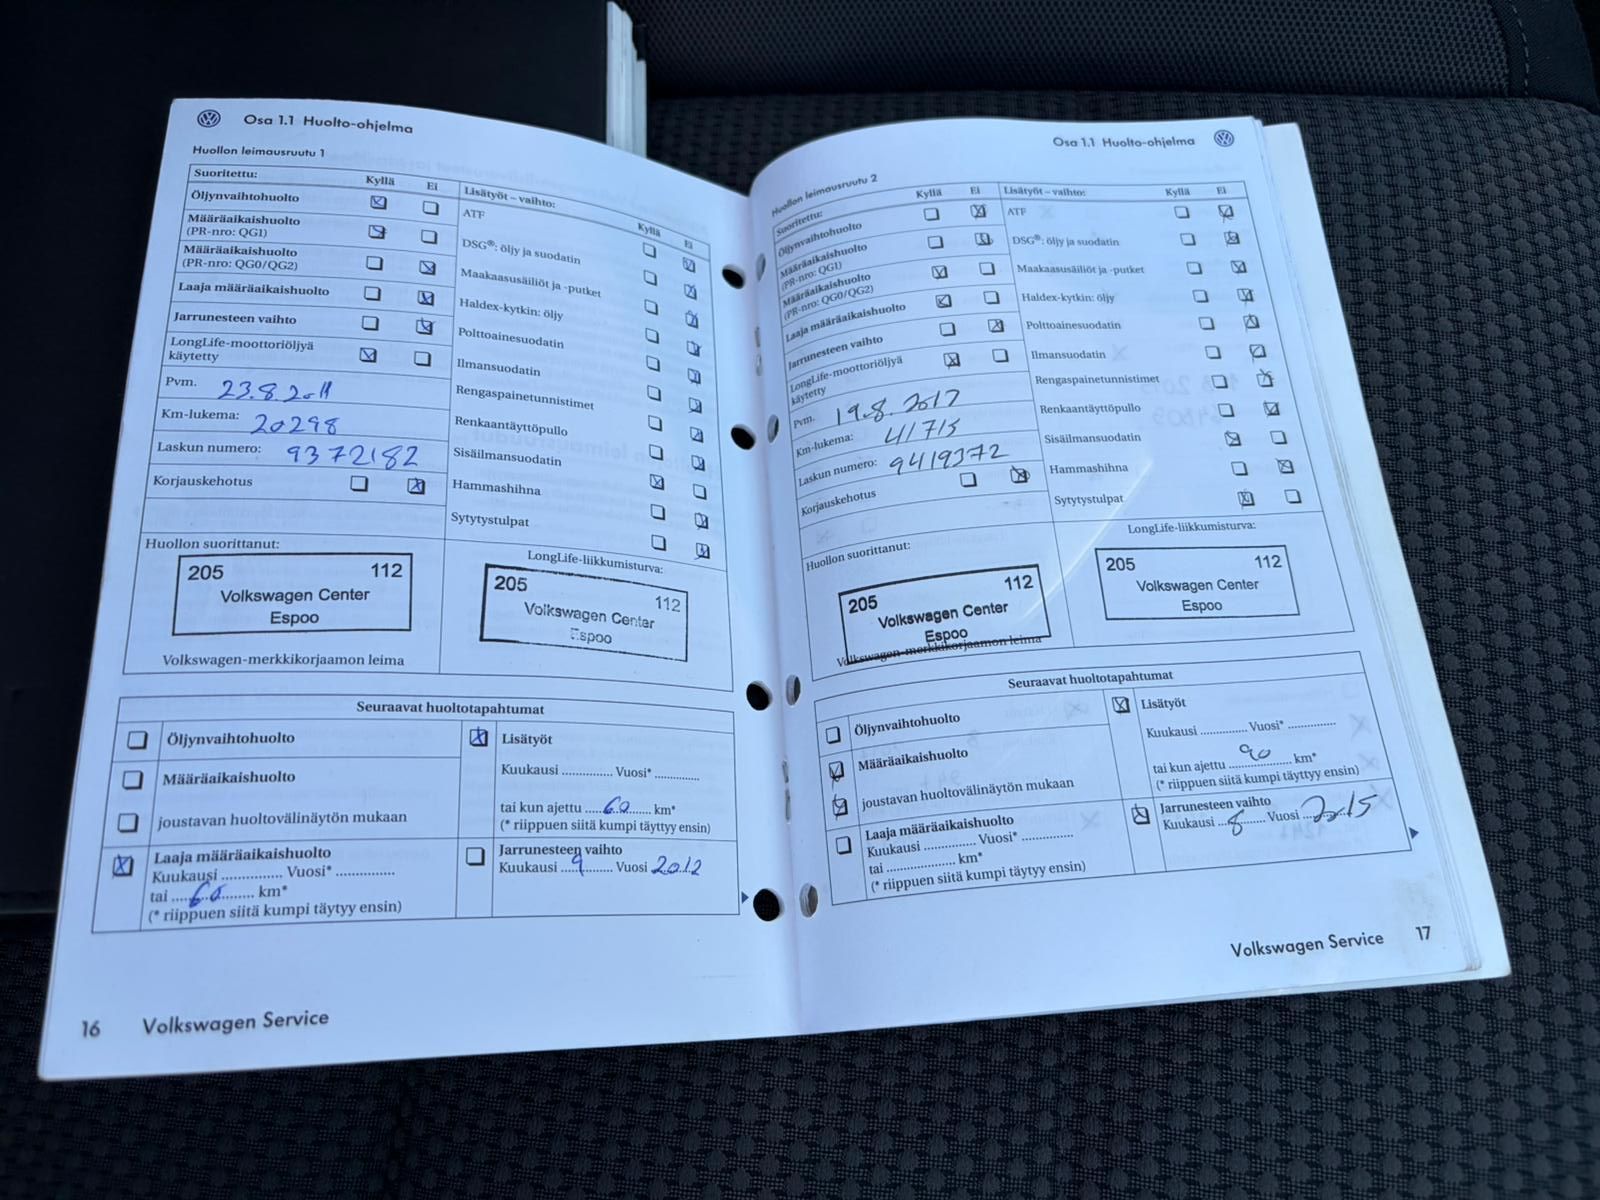 Osa 1.1 Huolto-ohjelma
Huollon leimausruutu 1
Suoritettu:
Kyllä Ei
Öljynvaihtohuolto
Määräaikaishuolto
(PR-nro: QG1)
Määräaikaishuolto
(PR-nro: QG0/QG2)
Laaja määräaikaishuolto
Jarrunesteen vaihto
LongLife-moottoriöljyä
käytetty
Pvm. 23.8.2011
Km-lukema: 20298
Laskun numero: 9372182
Korjauskehotus
Lisätyöt – vaihto:
Kyllä Ei
ATF
DSG®: öljy ja suodatin
Maakaasusäiliöt ja -putket
Haldex-kytkin: öljy
Polttoainesuodatin
Ilmansuodatin
Rengaspainetunnistimet
Renkaantäyttöpullo
Sisäilmansuodatin
Hammashihna
Sytytystulpat
Huollon suorittanut:
205 112
Volkswagen Center
Espoo
Volkswagen-merkkikorjaamon leima
LongLife-liikkumisturva:
205 112
Volkswagen Center
Espoo
Seuraavat huoltotapahtumat
Öljynvaihtohuolto
Määräaikaishuolto
joustavan huoltovälinäytön mukaan
Laaja määräaikaishuolto
Kuukausi .............. Vuosi* ..............
tai ....60.......... km*
(* riippuen siitä kumpi täytyy ensin)
Lisätyöt
Kuukausi .............. Vuosi* ............
tai kun ajettu .....60....... km*
(* riippuen siitä kumpi täytyy ensin)
Jarrunesteen vaihto
Kuukausi ...9....... Vuosi 2012
16 Volkswagen Service
Osa 1.1 Huolto-ohjelma
Huollon leimausruutu 2
Suoritettu:
Kyllä Ei
Öljynvaihtohuolto
Määräaikaishuolto
(PR-nro: QG1)
Määräaikaishuolto
(PR-nro: QG0/QG2)
Laaja määräaikaishuolto
Jarrunesteen vaihto
LongLife-moottoriöljyä
käytetty
Pvm. 19.8.2012
Km-lukema: 41715
Laskun numero: 9419372
Korjauskehotus
Lisätyöt – vaihto:
Kyllä Ei
ATF
DSG®: öljy ja suodatin
Maakaasusäiliöt ja -putket
Haldex-kytkin: öljy
Polttoainesuodatin
Ilmansuodatin
Rengaspainetunnistimet
Renkaantäyttöpullo
Sisäilmansuodatin
Hammashihna
Sytytystulpat
Huollon suorittanut:
205 112
Volkswagen Center
Espoo
Volkswagen-merkkikorjaamon leima
LongLife-liikkumisturva:
205 112
Volkswagen Center
Espoo
Seuraavat huoltotapahtumat
Öljynvaihtohuolto
Määräaikaishuolto
joustavan huoltovälinäytön mukaan
Laaja määräaikaishuolto
Kuukausi .............. Vuosi* ..............
tai .................... km*
(* riippuen siitä kumpi täytyy ensin)
Lisätyöt
Kuukausi .............. Vuosi* ..............
tai kun ajettu ......90........ km*
(* riippuen siitä kumpi täytyy ensin)
Jarrunesteen vaihto
Kuukausi ...8....... Vuosi ...2015
Volkswagen Service 17